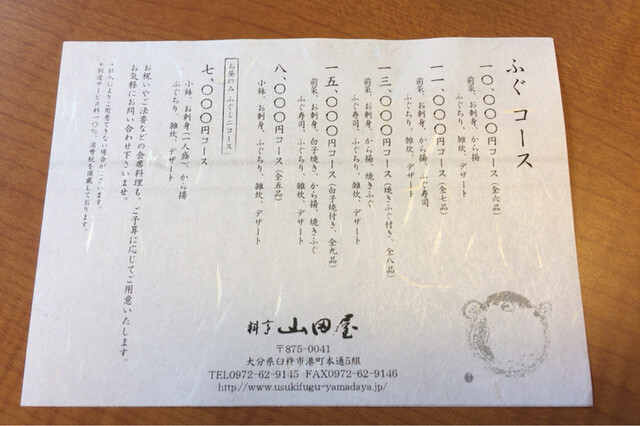 ふぐ コース
一〇、〇〇〇円コース（全六品）
前菜、お刺身、から揚
ふぐちり、雑炊、デザート
一一、〇〇〇円コース（全七品）
前菜、お刺身、から揚、ふぐ寿司
ふぐちり、雑炊、デザート
一三、〇〇〇円コース（焼きふぐ付き、全八品）
前菜、お刺身、から揚、焼きふぐ
ふぐ寿司、ふぐちり、雑炊、デザート
一五、〇〇〇円コース（白子焼付き、全九品）
前菜、お刺身、白子焼き、から揚、焼きふぐ
ふぐ寿司、ふぐちり、雑炊、デザート
八、〇〇〇円コース（全五品）
小鉢、お刺身、ふぐちり、雑炊、デザート
お昼のみ ふぐミニコース
七、〇〇〇円コース
小鉢、お刺身（一人盛）、から揚
ふぐちり、雑炊、デザート
お祝いやご法要などの会席料理も、ご予算に応じてご用意いたします。
お気軽にお問い合わせ下さいませ。
＊仕入によりご用意できない場合がございます。
＊別途サービス料一〇％、消費税を頂戴しております。
料亭 山田屋
〒875-0041
大分県臼杵市港町本通5組
TEL0972-62-9145 FAX0972-62-9146
http://www.usukifugu-yamadaya.jp/